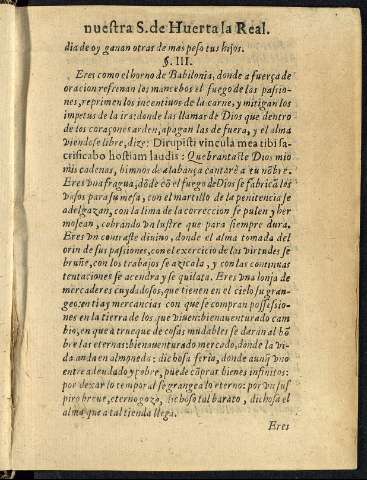 nuestra S. de Huerta la Real.
dia de oy ganan otras de mas peso tus hijos.
§. III.
Eres como el horno de Babilonia, donde a fuerça de
oracion refrenan los mancebos el fuego de las passio-
nes, reprimen los incentiuos de la carne, y mitigan los
impetus de la ira: donde las llamas de Dios que dentro
de los coraçones arden, apagan las de fuera, y el alma
viendose libre, dize: Dirupisti vincula mea tibi sa-
crificabo hostiam laudis: Quebrantaste Dios mio
mis cadenas, himnos de alabança cantarè a tu nõbre.
Eres vna fragua, dõde cõ el fuego de Dios se fabricã los
vasos para su mesa, con el martillo de la penitencia se
adelgazan, con la lima de la correccion se pulen y her
mosean, cobrando vn lustre que para siempre dura.
Eres vn contraste diuino, donde el alma tomada del
orin de sus passiones, con el exercicio de las virtudes se
bruñe, con los trabajos se azicala, y con las continuas
tentaciones se acendra y se quilata. Eres vna lonja de
mercaderes cuydadosos, que tienen en el cielo su gran-
geo: entra y mercancias con que se compran possessio-
nes en la tierra de los que viuen: bienauenturado cam
bio, en que a trueque de cosas mudables se daràn al hõ
bre las eternas: bienauenturado mercado, donde la vi-
da anda en almoneda: dichosa feria, donde aunq̃ vno
entre adeudado y pobre, puede cõprar bienes infinitos:
por dexar lo temporal se grangea lo eterno: por vn sus
piro breue, eterno gozo, dichoso tal barato, dichosa el
alma que a tal tienda llega.
Eres